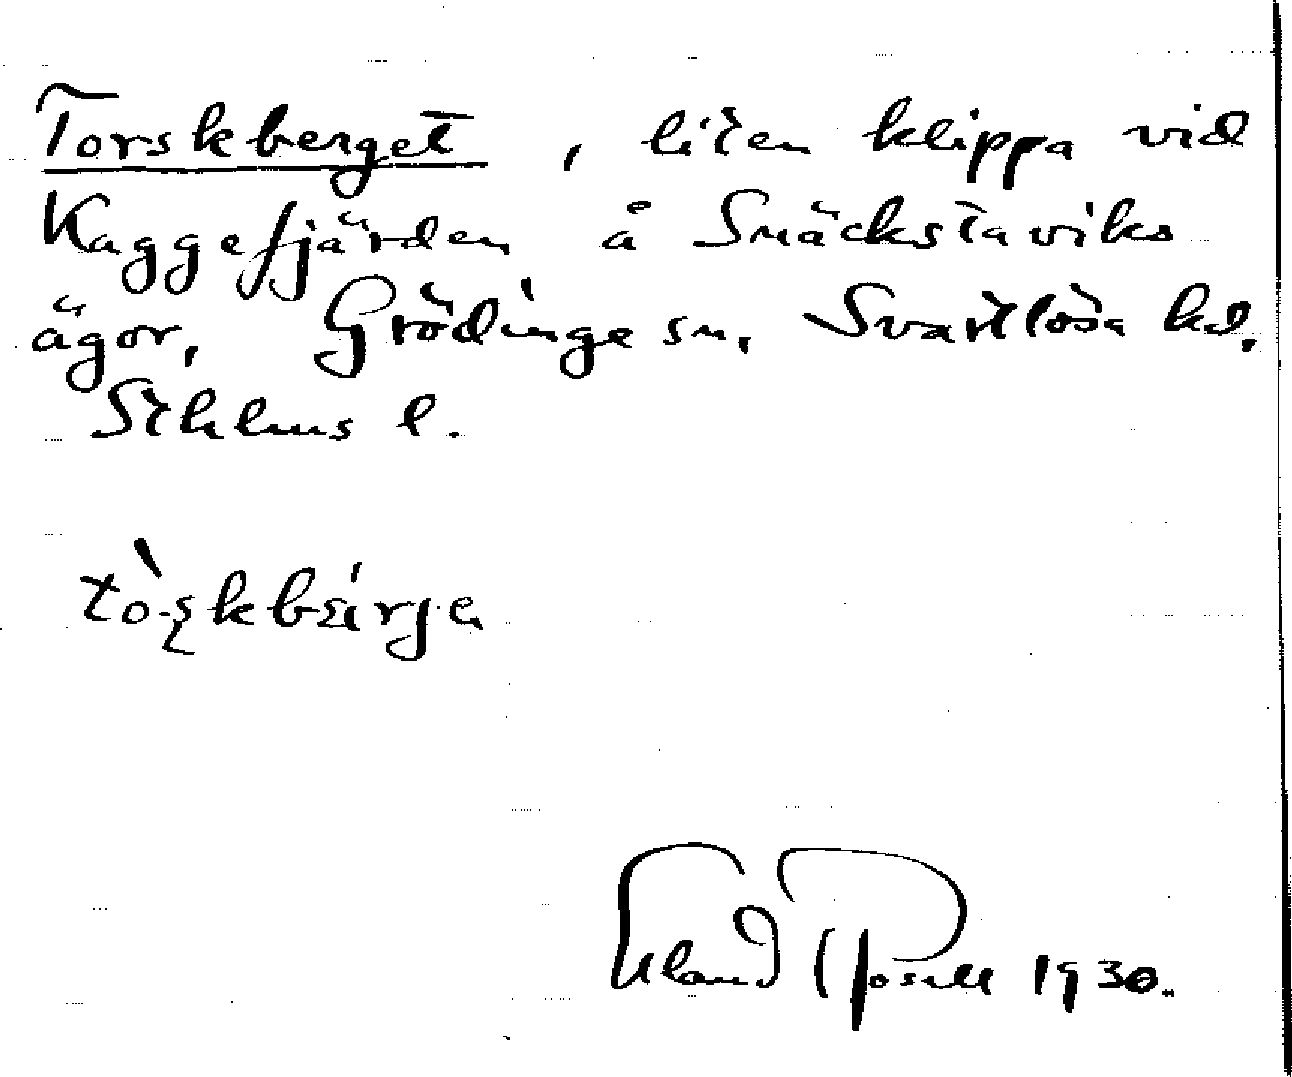 Torskberget, liten klippa vid
Kaggefjärden å Snäckstaviks
ägor, Grödinge sn, Svartlösa hd.
Sthlms l.
1930.